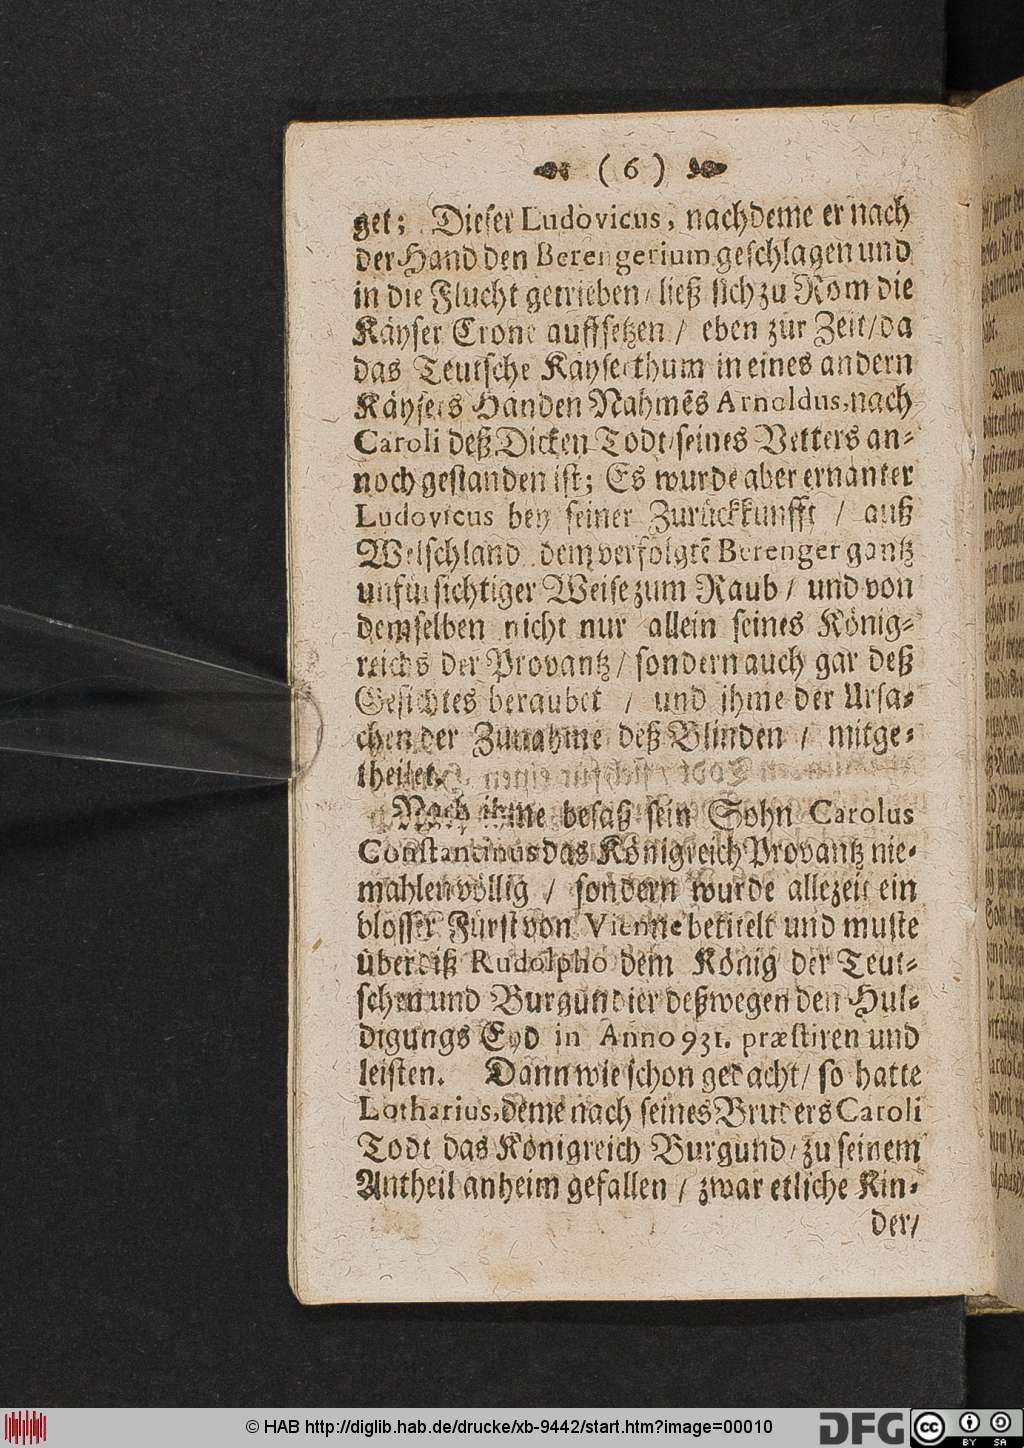 ( 6 )
get; Dieser Ludovicus, nachdeme er nach
der Hand den Berengerium geschlagen und
in die Flucht getrieben/ ließ sich zu Rom die
Käyser Crone auffsetzen / eben zur Zeit/da
das Teutsche Käyserthum in eines andern
Käysers Handen Nahmēs Arnoldus, nach
Caroli deß Dicken Todt/seines Vetters an-
noch gestanden ist; Es wurde aber ernanter
Ludovicus bey seiner Zurückkunfft / auß
Welschland dem verfolgtē Berenger gantz
unfürsichtiger Weise zum Raub / und von
demselben nicht nur allein seines König-
reichs der Provantz/ sondern auch gar deß
Gesichtes beraubet / und ihme der Ursa-
chen der Zunahme deß Blinden / mitge-
theilet.
Nach ihme besaß sein Sohn Carolus
Constantinus das Königreich Provantz nie-
mahlen völlig / sondern wurde allezeit ein
blosser Fürst von Vienne betitelt und muste
überdiß Rudolpho dem König der Teut-
schen und Burgundier deßwegen den Hul-
digungs Eyd in Anno 931. præstiren und
leisten. Dann wie schon gedacht/ so hatte
Lotharius, deme nach seines Bruders Caroli
Todt das Königreich Burgund/ zu seinem
Antheil anheim gefallen / zwar etliche Kin-
der/
© HAB http://diglib.hab.de/drucke/xb-9442/start.htm?image=00010
DFG
cc
BY SA